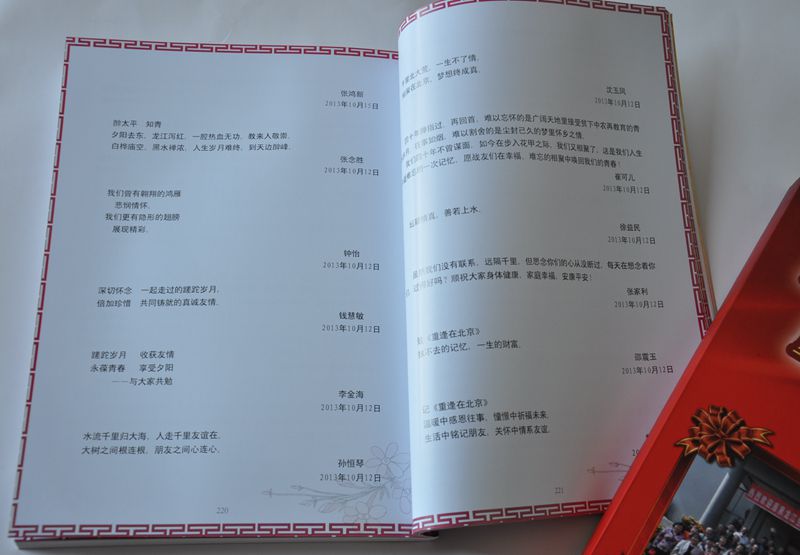 张鸿新
2013年10月15日
醉太平　知青
夕阳去东，龙江泻红，一腔热血无功，教来人敬崇。
白桦庙空，黑水禅浓，人生岁月难终，到天边
张念胜
2013年10月12日
我们曾有翱翔的鸿雁
悲悯情怀。
我们更有隐形的翅膀
展现精彩。
钟怡
2013年10月12日
深切怀念　一起走过的蹉跎岁月，
倍加珍惜　共同铸就的真诚友情。
钱慧敏
2013年10月12日
蹉跎岁月　收获友情
永葆青春　享受夕阳
——与大家共勉
李金海
2013年10月12日
水流千里归大海，人走千里友谊在。
大树之间根连根，朋友之间心连心。
孙恒琴
2013年10月12日
220
北大荒，一生不了情，
在北京，梦想终成真。
沈玉凤
2013年10月12日
十年弹指过，再回首，难以忘怀的是广阔天地里接受贫下中农再教育的青
往事如烟，难以割舍的是尘封已久的梦里怀乡之情。
我们四十年不曾谋面，如今在步入花甲之际，我们又相聚了，这是我们人生
的一次记忆，愿战友们在幸福、难忘的相聚中唤回我们的青春！
崔可儿
2013年10月12日
真，善若上水。
徐益民
2013年10月12日
虽然我们没有联系，远隔千里，但思念你们的心从没断过，每天在想念着你
过得好吗？顺祝大家身体健康，家庭幸福，安康平安！
张家利
2013年10月12日
《重逢在北京》
不去的记忆，一生的财富。
邵震玉
2013年10月12日
记《重逢在北京》
温暖中感恩往事，憧憬中祈福未来，
生活中铭记朋友，关怀中情系友谊。
221